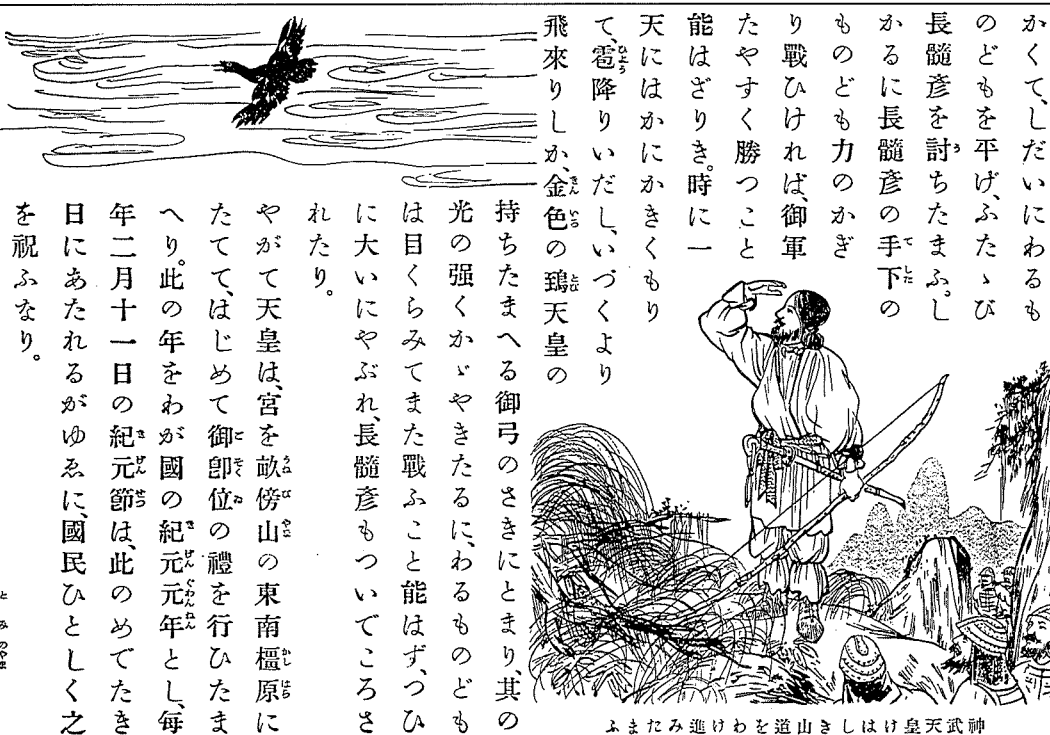 かくて、しだいにわるも
のどもを平げ、ふたゝび
長髓彥を討ちたまふ。し
かるに長髓彥の手下の
ものども力のかぎ
り戰ひければ、御軍
たやすく勝つこと
能はざりき。時に一
天にはかにかきくもり
て、雹降りいだし、いづくより
飛來りしか、金色の鵄天皇の
持ちたまへる御弓のさきにとまり、其の
光の强くかゞやきたるに、わるものども
は目くらみてまた戰ふこと能はず、つひ
に大いにやぶれ、長髓彥もついでころさ
れたり。
やがて天皇は、宮を畝傍山の東南橿原に
たてて、はじめて御卽位の禮を行ひたま
へり。此の年をわが國の紀元元年とし、每
年二月十一日の紀元節は、此のめでたき
日にあたれるがゆゑに、國民ひとしく之
を祝ふなり。
とみのやま
ふまたみ進けわを道山きしはけ皇天武神